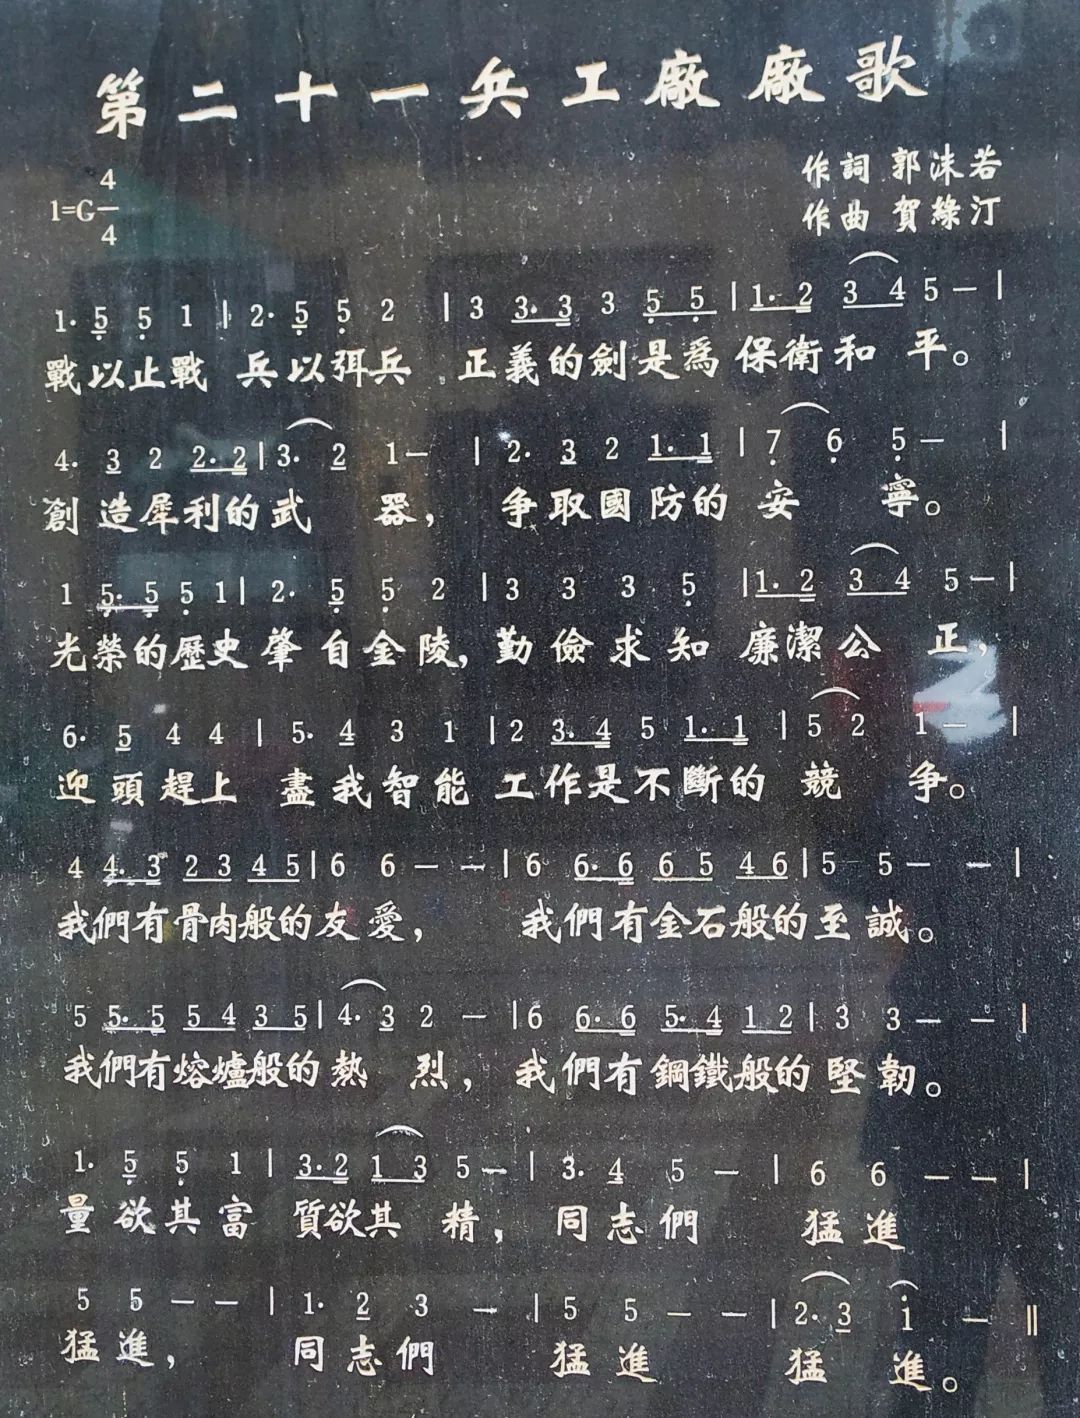 第二十一兵工廠廠歌
作詞 郭沫若
1=G 4/4
作曲 賀綠汀
1· 5 5 1 | 2· 5 5 2 | 3 3· 3 3 5 5 | 1· 2 3 4 5 — |
戰以止戰 兵以弭兵 正義的劍是爲保衛和 平。
4· 3 2 2· 2 | 3· 2 1 — | 2· 3 2 1· 1 | 7 6 5 — |
創造犀利的武 器, 爭取國防的安 寧。
1 5· 5 5 1 | 2· 5 5 2 | 3 3 3 5 | 1· 2 3 4 5 — |
光榮的歷史肇自金陵, 勤儉求知 廉潔公 正,
6· 5 4 4 | 5· 4 3 1 | 2 3· 4 5 1· 1 | 5 2 1 — |
迎頭趕上 盡我智能 工作是不斷的競 爭。
4 4· 3 2 3 4 5 | 6 6 — — | 6 6· 6 6 5 4 6 | 5 5 — — |
我們有骨肉般的友愛, 我們有金石般的至誠。
5 5· 5 5 4 3 5 | 4· 3 2 — | 6 6· 6 5· 4 1 2 | 3 3 — — |
我們有熔爐般的熱 烈, 我們有鋼鐵般的堅韌。
1· 5 5 1 | 3· 2 1 3 5 — | 3· 4 5 — | 6 6 — — |
量欲其富 質欲其 精, 同志們 猛進
5 5 — — | 1· 2 3 — | 5 5 — — | 2· 3 1 — ‖
猛進, 同志們 猛進 猛 進。